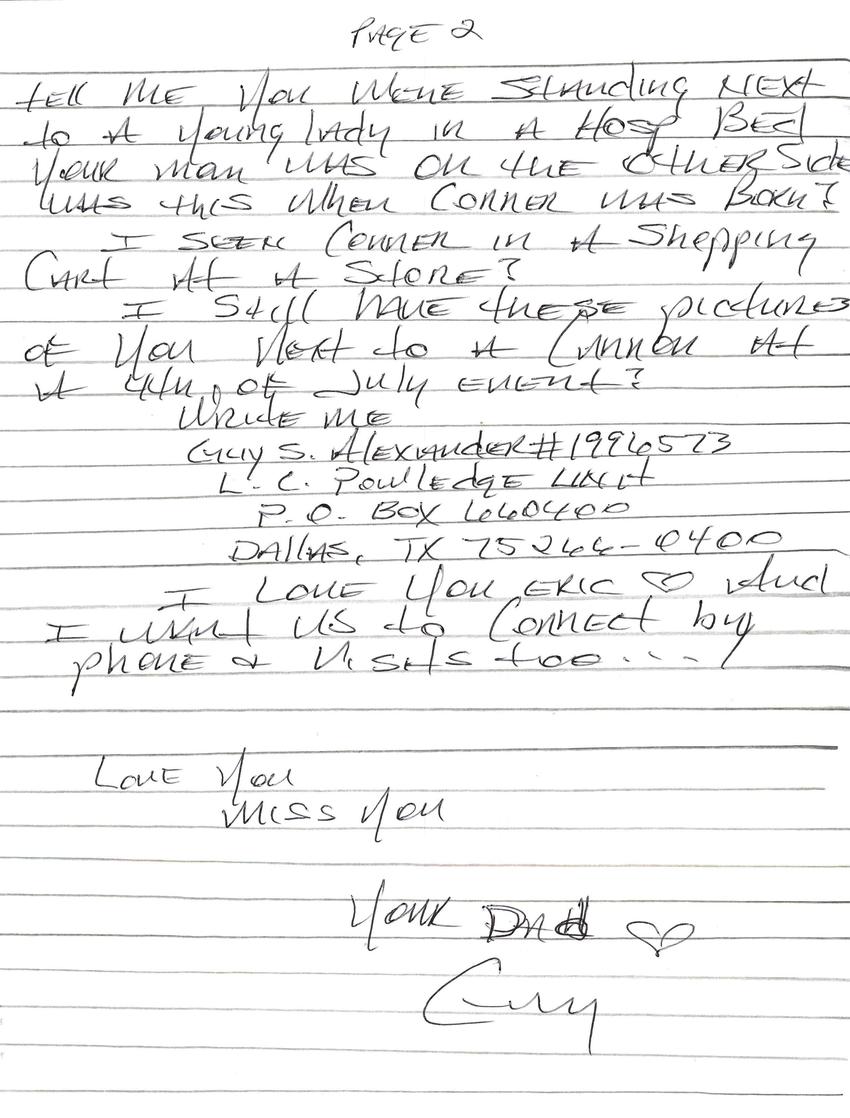 PAGE 2
tell ME You WERE Standing NEXT
to A Young lady in A Hosp BEd
Your man WAS ON the OTHER Side
WAS this When CONNER WAS BORN?
I SEEN CONNER in A Shopping
CARt At A StORE?
I Still HAVE these pictures
of You Next to A Cannon At
A 4th, of July event?
Write me
Guy S. Alexander #1996573
L. C. Powledge Unit
P.O. BOX 660400
DAllAS, TX 75266-0400
I LOVE You ERIC ♡ And
I want US to Connect by
phone & Visits too....
LOVE You
Miss You
Your Dad ♡
Guy